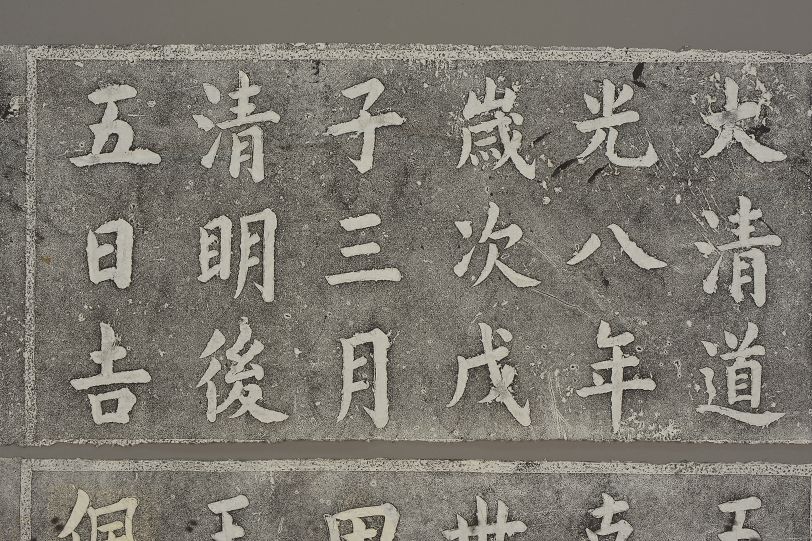 大清道
光八年
歲次戊
子三月
清明後
五日吉